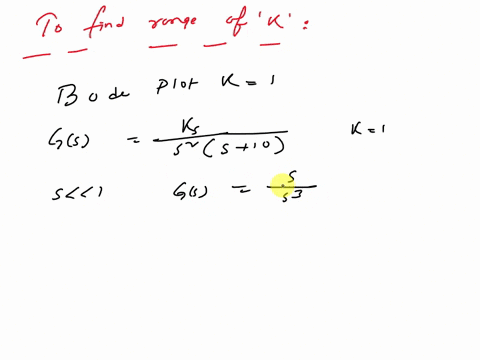 To find range of 'K' :
Bode plot K = 1
G(s) = Ks / s²(s+10) K = 1
s<<1 G(s) = s / s³